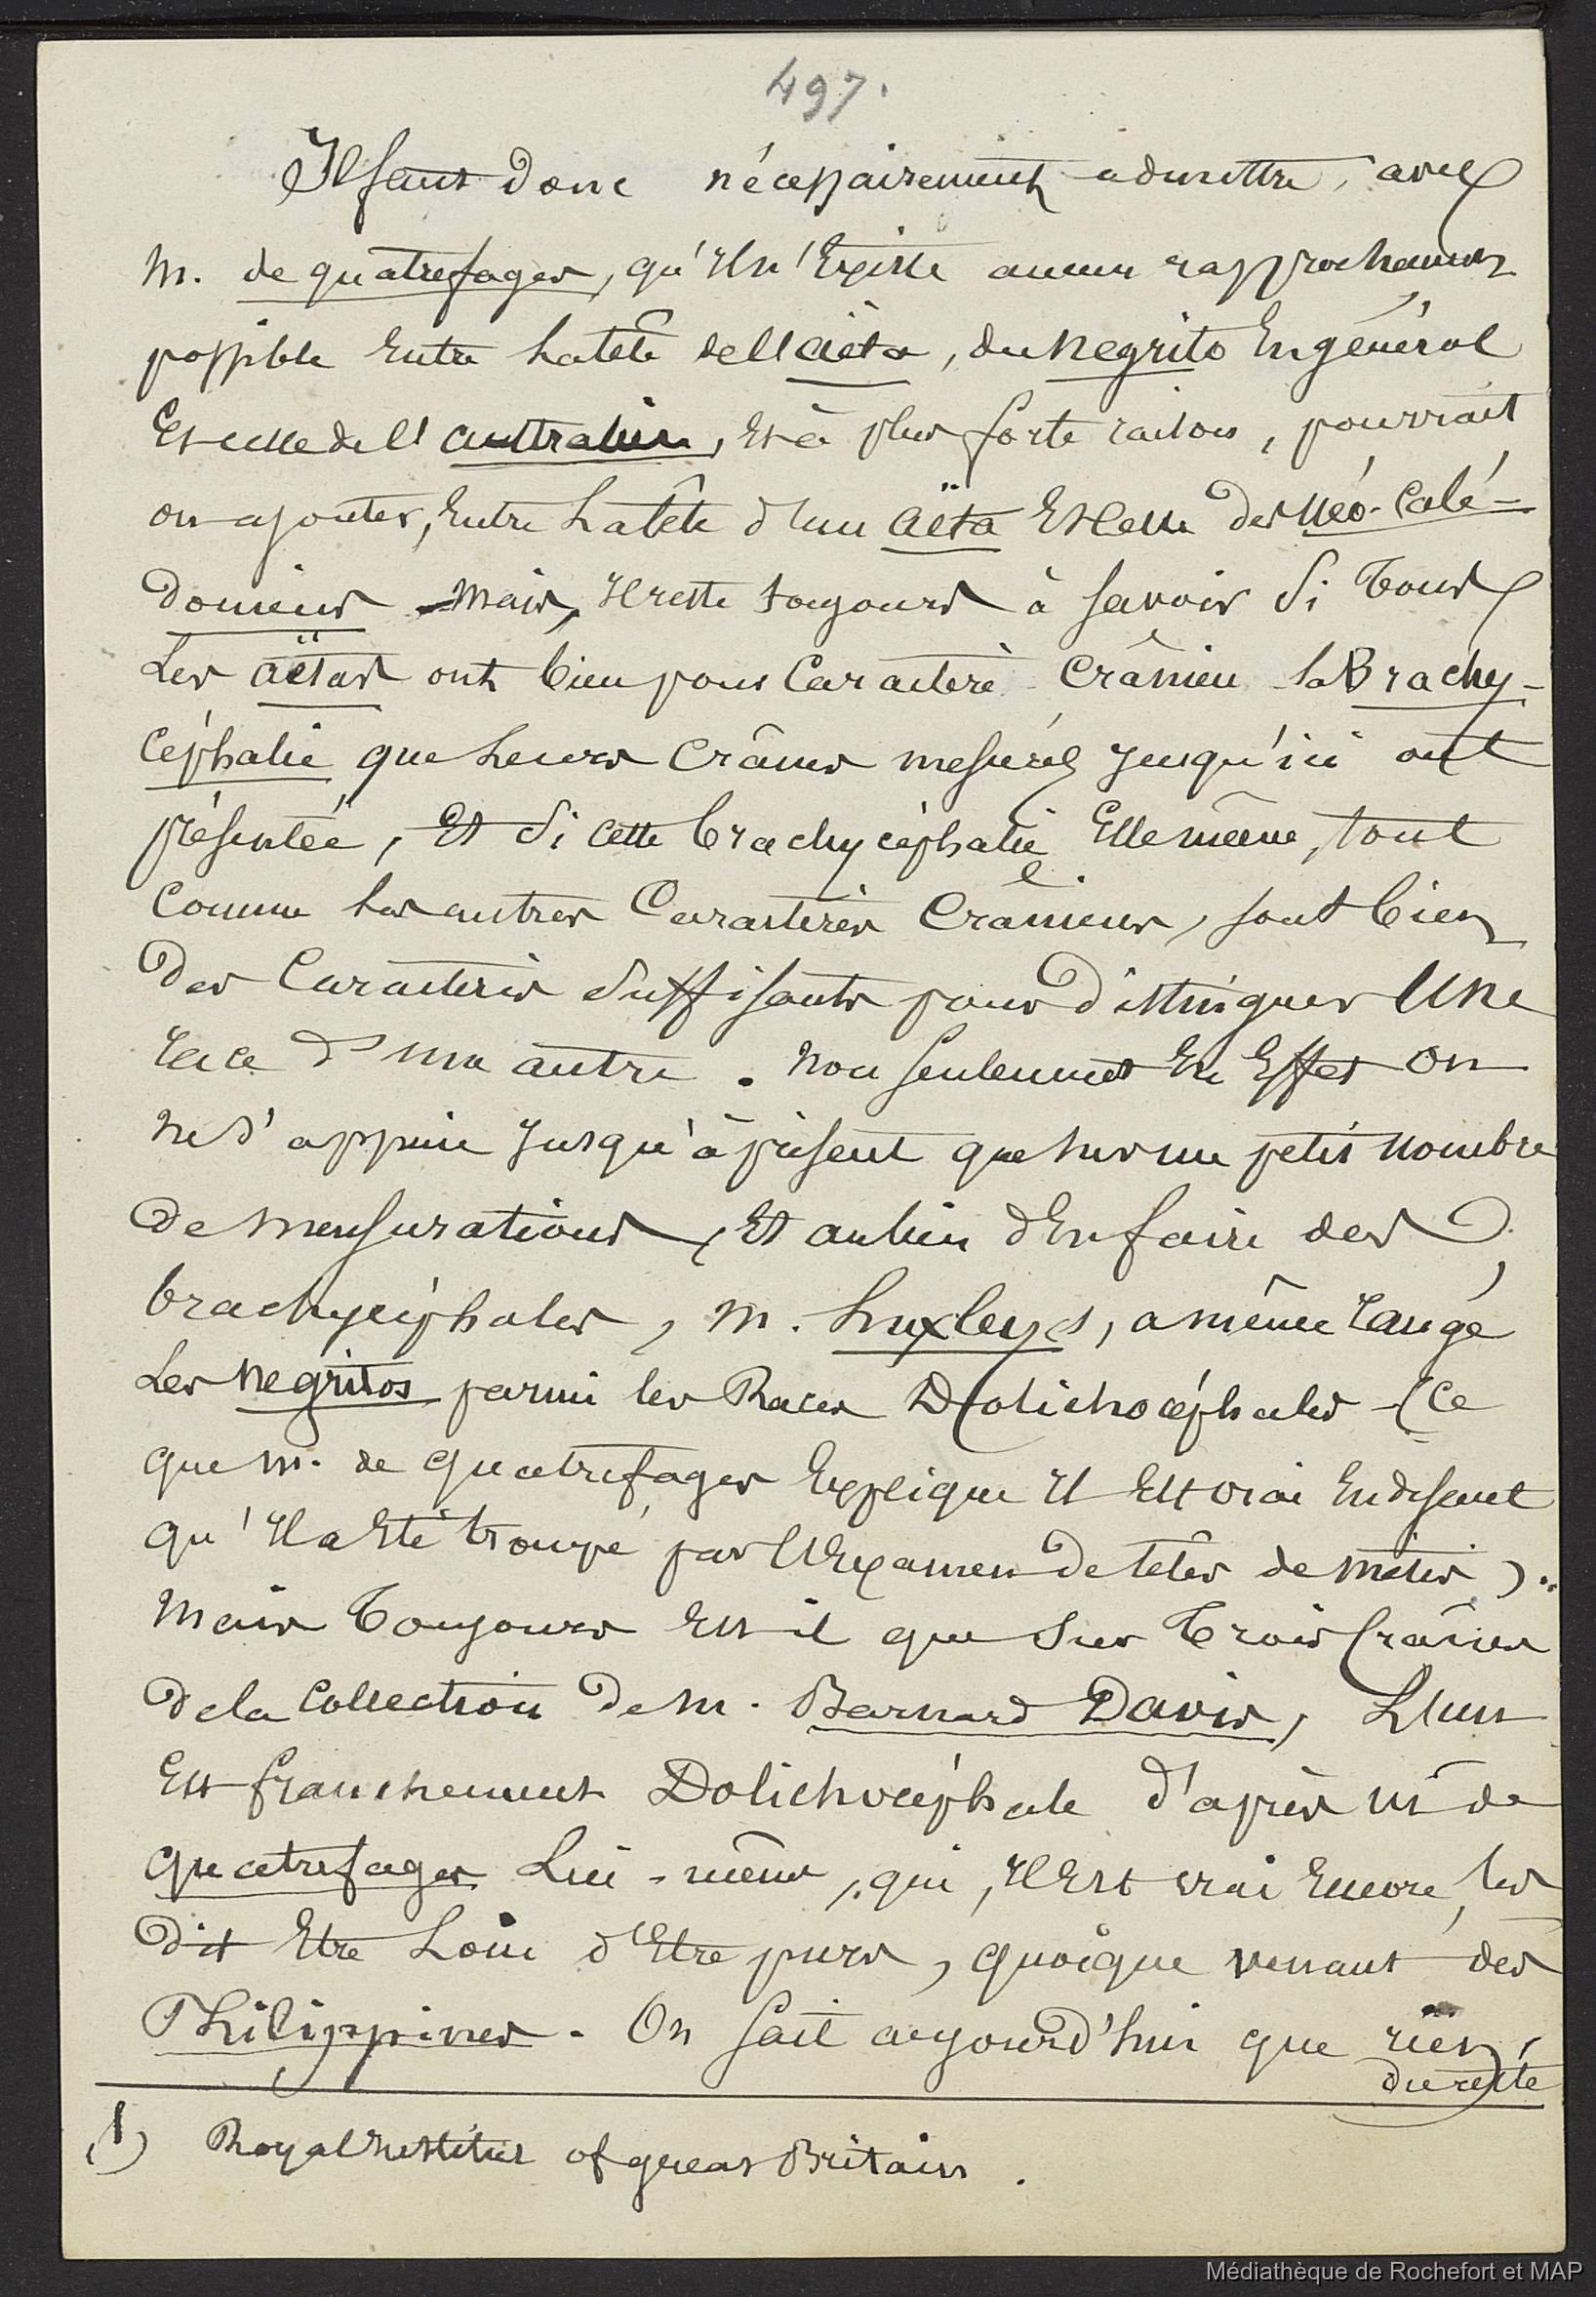 497.
Il faut donc nécessairement admettre, avec
M. de quatrefages, qu'il n'existe aucun rapprochement
possible entre la tête de l'aëta, du negrito en général
et celle de l'australien, et à plus forte raison, pourrait
on ajouter, entre la tête d'un aëta et celle des néo-calé-
doniens. Mais, il reste toujours à savoir si tous
les aëtas ont bien pour caractère crânien la Brachy-
céphalie que leurs crânes mesurés jusqu'ici ont
présentée, et si cette brachycéphalie elle même, tout
comme les autres caractères crâniens, sont bien
des caractères suffisants pour distinguer une
race d'une autre. Non seulement en effet on
ne s'appuie jusqu'à présent que sur un petit nombre
de mensurations, et au lieu d'en faire des
brachycéphales, M. huxley (1), a même rangé
les negritos parmi les Races Dolichocéphales (ce
que M. de quatrefages explique il est vrai en disant
qu'il a été trompé par l'examen de têtes de métis).
Mais toujours est il que sur trois crânes
de la collection de M. Barnard Davis, l'un
est franchement Dolichocéphale d'après M. de
quatrefages lui-même, qui, il est vrai encore, les
dit être loin d'être purs, quoique venant des
Philippines. On sait aujourd'hui que rien,
du reste
(1) Royal Institut of great Britain.
Médiathèque de Rochefort et MAP